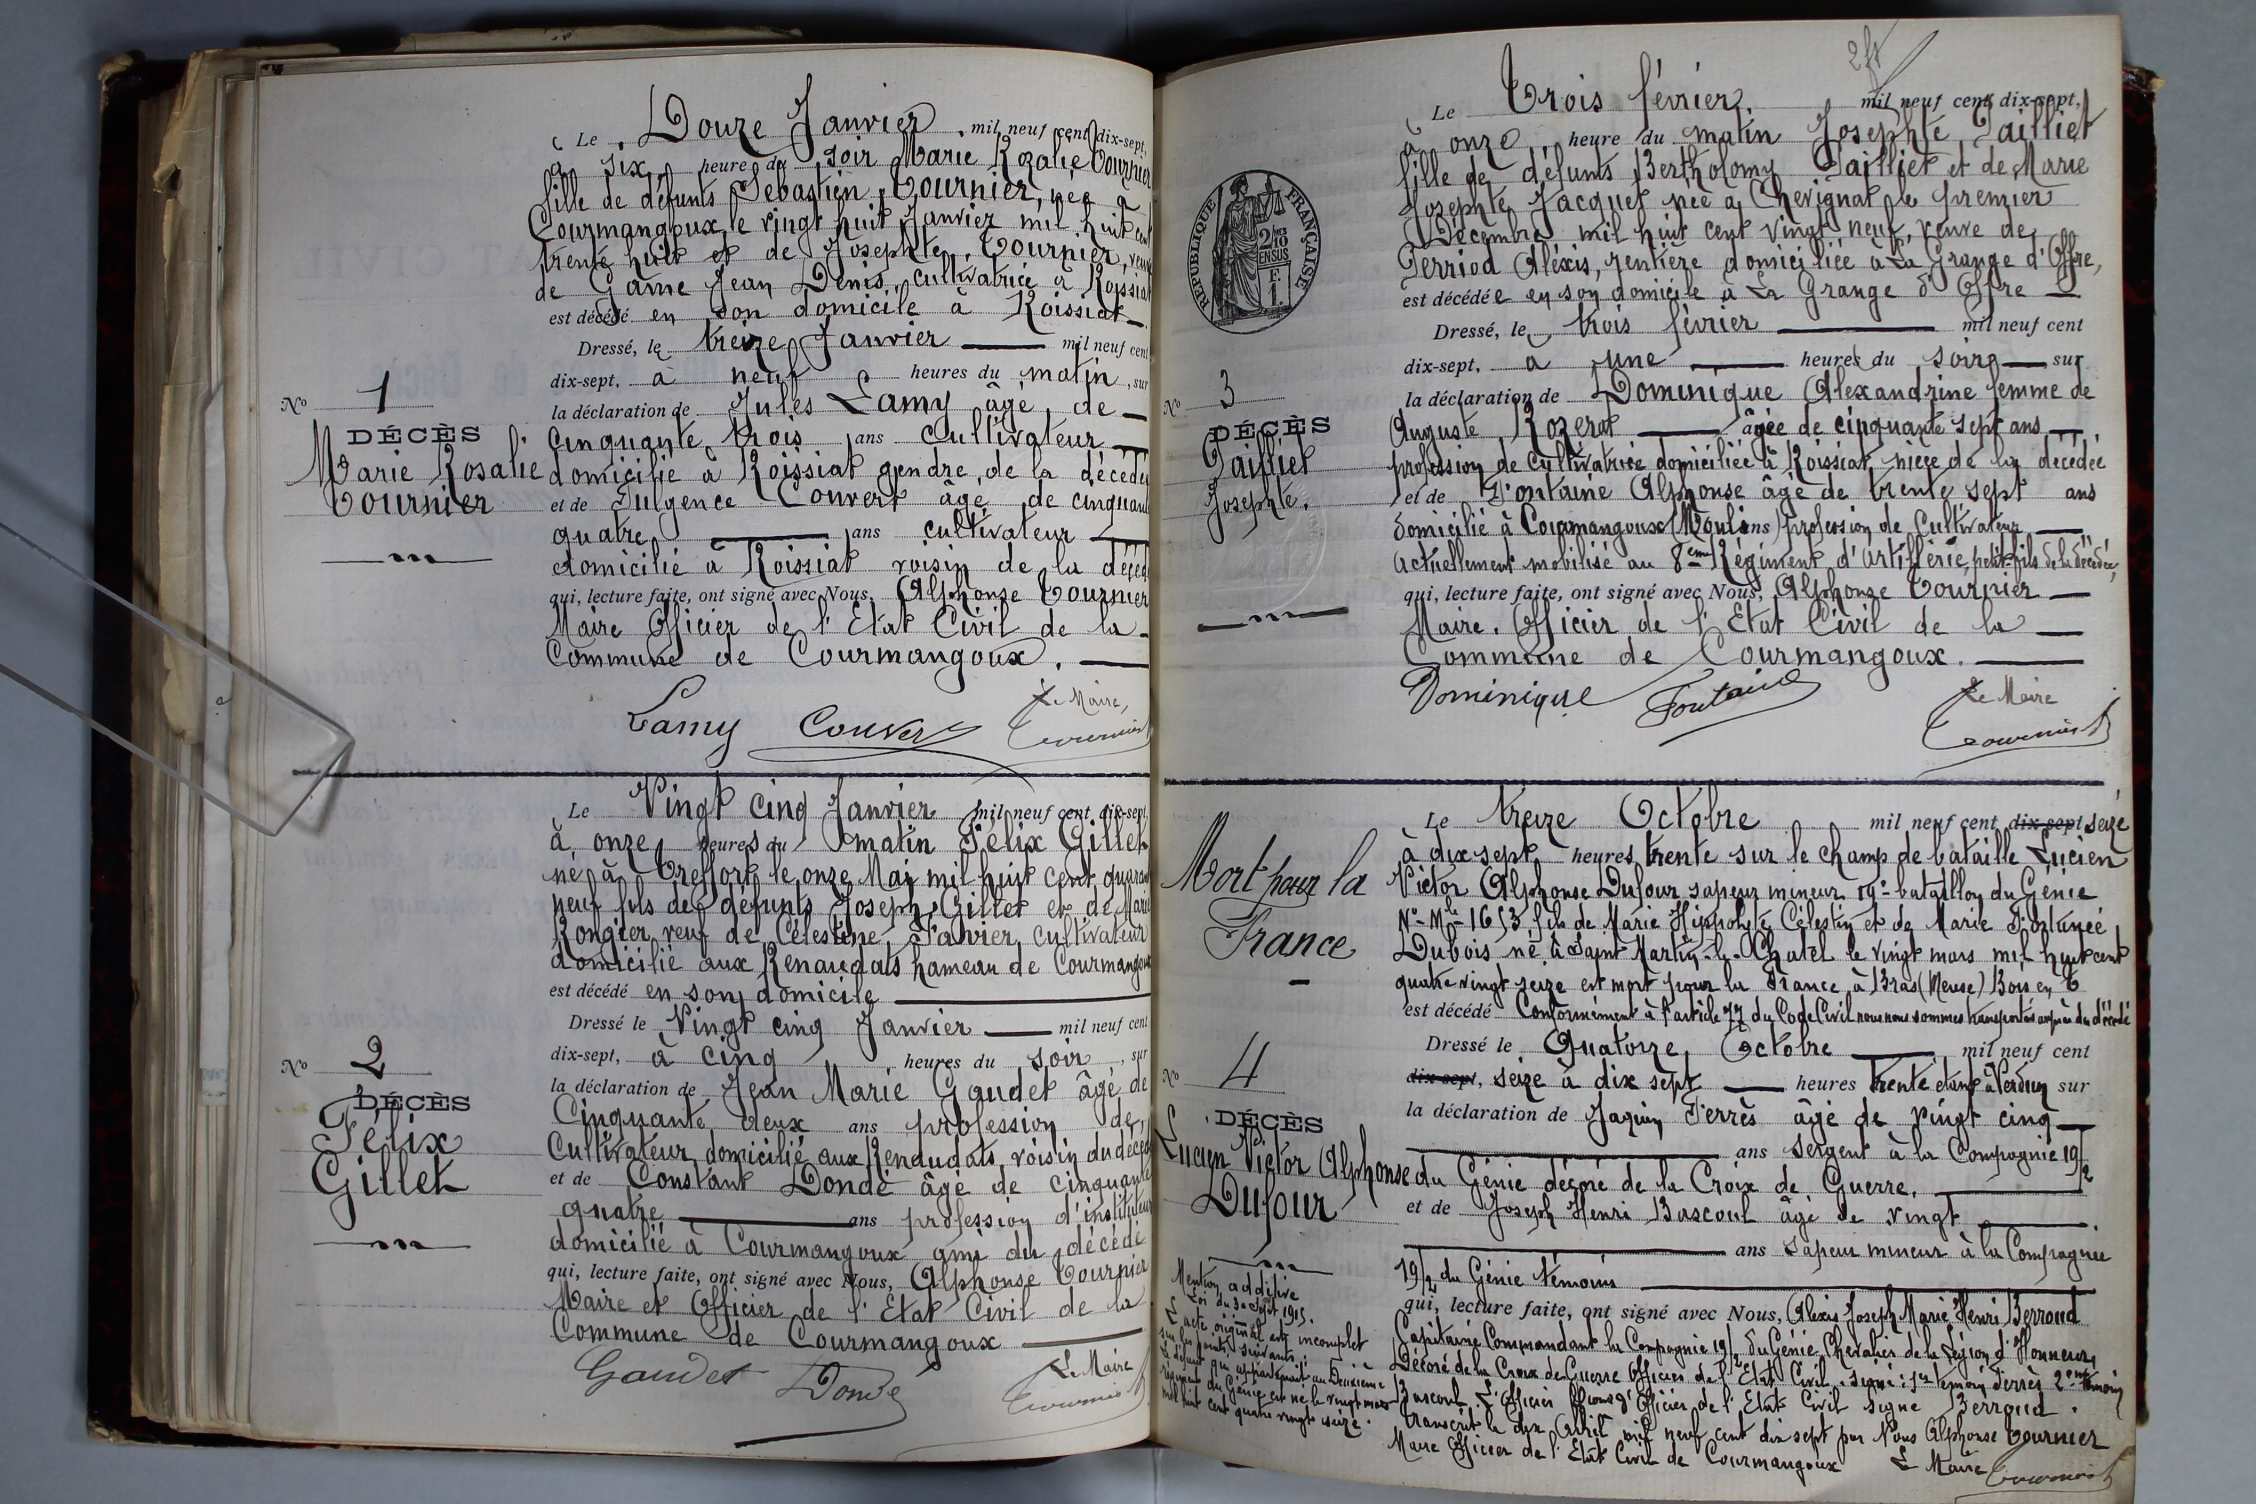 Le Douze Janvier, mil neuf cent dix-sept,
à six heure du soir Marie Rozalie Tournier
fille de défunts Sébastien Tournier, née à
Courmangoux le vingt huit Janvier mil huit cent
trente huit et de Josephte Tournier, veuve
de Game Jean Denis, cultivatrice à Roissiat
est décédé en son domicile à Roissiat
Dressé, le treize Janvier mil neuf cent
dix-sept, à neuf heures du matin, sur
la déclaration de Jules Lamy âgé de
cinquante trois ans cultivateur
domicilié à Roissiat gendre de la décédée
et de Fulgence Convert âgé de cinquante
quatre ans cultivateur
domicilié à Roissiat voisin de la décédé
qui, lecture faite, ont signé avec Nous, Alphonse Tournier
Maire Officier de l'Etat Civil de la
Commune de Courmangoux.
Lamy Convert Le Maire,
Tournier
No 1
DÉCÈS
Marie Rosalie
Tournier
Le Vingt cinq Janvier mil neuf cent dix-sept
à onze heures du matin Félix Gillet
né à Treffort le onze Mai mil huit cent quarante
neuf fils de défunts Joseph Gillet et de Marie
Rongier veuf de Célestine Favier cultivateur
domicilié aux Renaudats hameau de Courmangoux
est décédé en son domicile
Dressé le Vingt cinq Janvier mil neuf cent
dix-sept, à cinq heures du soir, sur
la déclaration de Jean Marie Gaudet âgé de
Cinquante deux ans profession de
Cultivateur domicilié aux Renaudats voisin du décédé
et de Constant Donde âgé de cinquante
quatre ans profession d'instituteur
domicilié à Courmangoux ami du décédé
qui, lecture faite, ont signé avec Nous, Alphonse Tournier
Maire et Officier de l'Etat Civil de la
Commune de Courmangoux
Gaudet Donde Le Maire
Tournier
No 2
DÉCÈS
Félix
Gillet
2 ft
Le Trois février, mil neuf cent dix-sept,
à onze heure du matin Josephte Pailliet
fille de défunts Bertholomy Pailliet et de Marie
Josephte Jacquet née à Chevignat le premier
Décembre mil huit cent vingt neuf, veuve de
Perriod Aléxis, rentière domiciliée à La Grange d'Offre,
est décédée en son domicile à La Grange d'Offre
Dressé, le trois février mil neuf cent
dix-sept, à une heures du soir sur
la déclaration de Dominique Alexandrine femme de
Auguste Rozerat âgée de cinquante sept ans
profession de cultivatrice domiciliée à Roissiat nièce de la décédée
et de Fontaine Alphonse âgé de trente sept ans
domicilié à Courmangoux (Moulins) profession de Cultivateur
actuellement mobilisé au 8eme Régiment d'artillerie, petit-fils de la décédée,
qui, lecture faite, ont signé avec Nous, Alphonse Tournier
Maire. Officier de l'Etat Civil de la
Commune de Courmangoux.
Dominique Fontaine Le Maire
Tournier
RÉPUBLIQUE FRANÇAISE
2/10
EN SUS
F.
1.
No 3
DÉCÈS
Pailliet
Josephte.
Le treize Octobre mil neuf cent dix-sept seize
à dix sept heures trente sur le champ de bataille Lucien
Victor Alphonse Dufour sapeur mineur 19e bataillon du Génie
No Mle 1653 fils de Marie Hippolyte Célestin et de Marie Fortunée
Dubois né à Saint Martin-le-Chatel le vingt mars mil huit cent
quatre vingt seize est mort pour la France à Bras (Meuse) Bois en T
est décédé Conformément à l'article 77 du Code Civil nous nous sommes transportés auprès du décédé
Dressé le Quatorze Octobre mil neuf cent
dix-sept, seize à dix sept heures trente étant à Verdun sur
la déclaration de Jaquin Ferrès âgé de vingt cinq
ans sergent à la Compagnie 19/2
du Génie décoré de la Croix de Guerre.
et de Joseph Henri Bascoul âgé de vingt
ans Sapeur mineur à la Compagnie
19/2 du Génie témoins
qui, lecture faite, ont signé avec Nous, Alexis Joseph Marie Henri Berroud
Capitaine Commandant la Compagnie 19/2 du Génie Chevalier de la Légion d'Honneur,
Décoré de la Croix de Guerre Officier de l'Etat Civil. signé: 1er témoin Ferrès 2eme témoin
Bascoul. L'Officier d'Officier de l'Etat Civil signé Berroud.
Transcrit le dix Avril mil neuf cent dix sept par Nous Alphonse Tournier
Maire Officier de l'Etat Civil de Courmangoux Le Maire Tournier
Mort pour la
France
No 4
DÉCÈS
Lucien Victor Alphonse
Dufour
Mention additive
Loi du 30 Sept 1915.
L'acte original est incomplet
sur les points suivants.
Le défunt qui appartenait au Deuxième
régiment du Génie est né le vingt mars
mil huit cent quatre vingt seize.